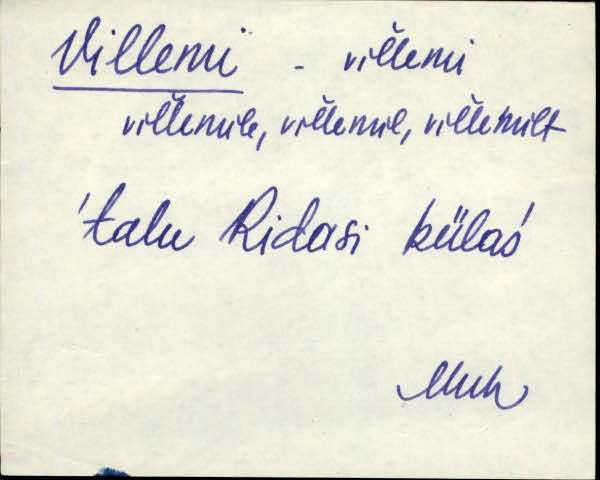 Villemi - villemi
villemile, villemil, villemilt
'talu Ridasi külas
Muh